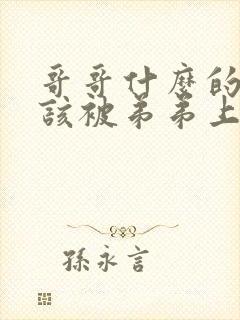 哥哥什麼的
該被弟弟上
孫永言